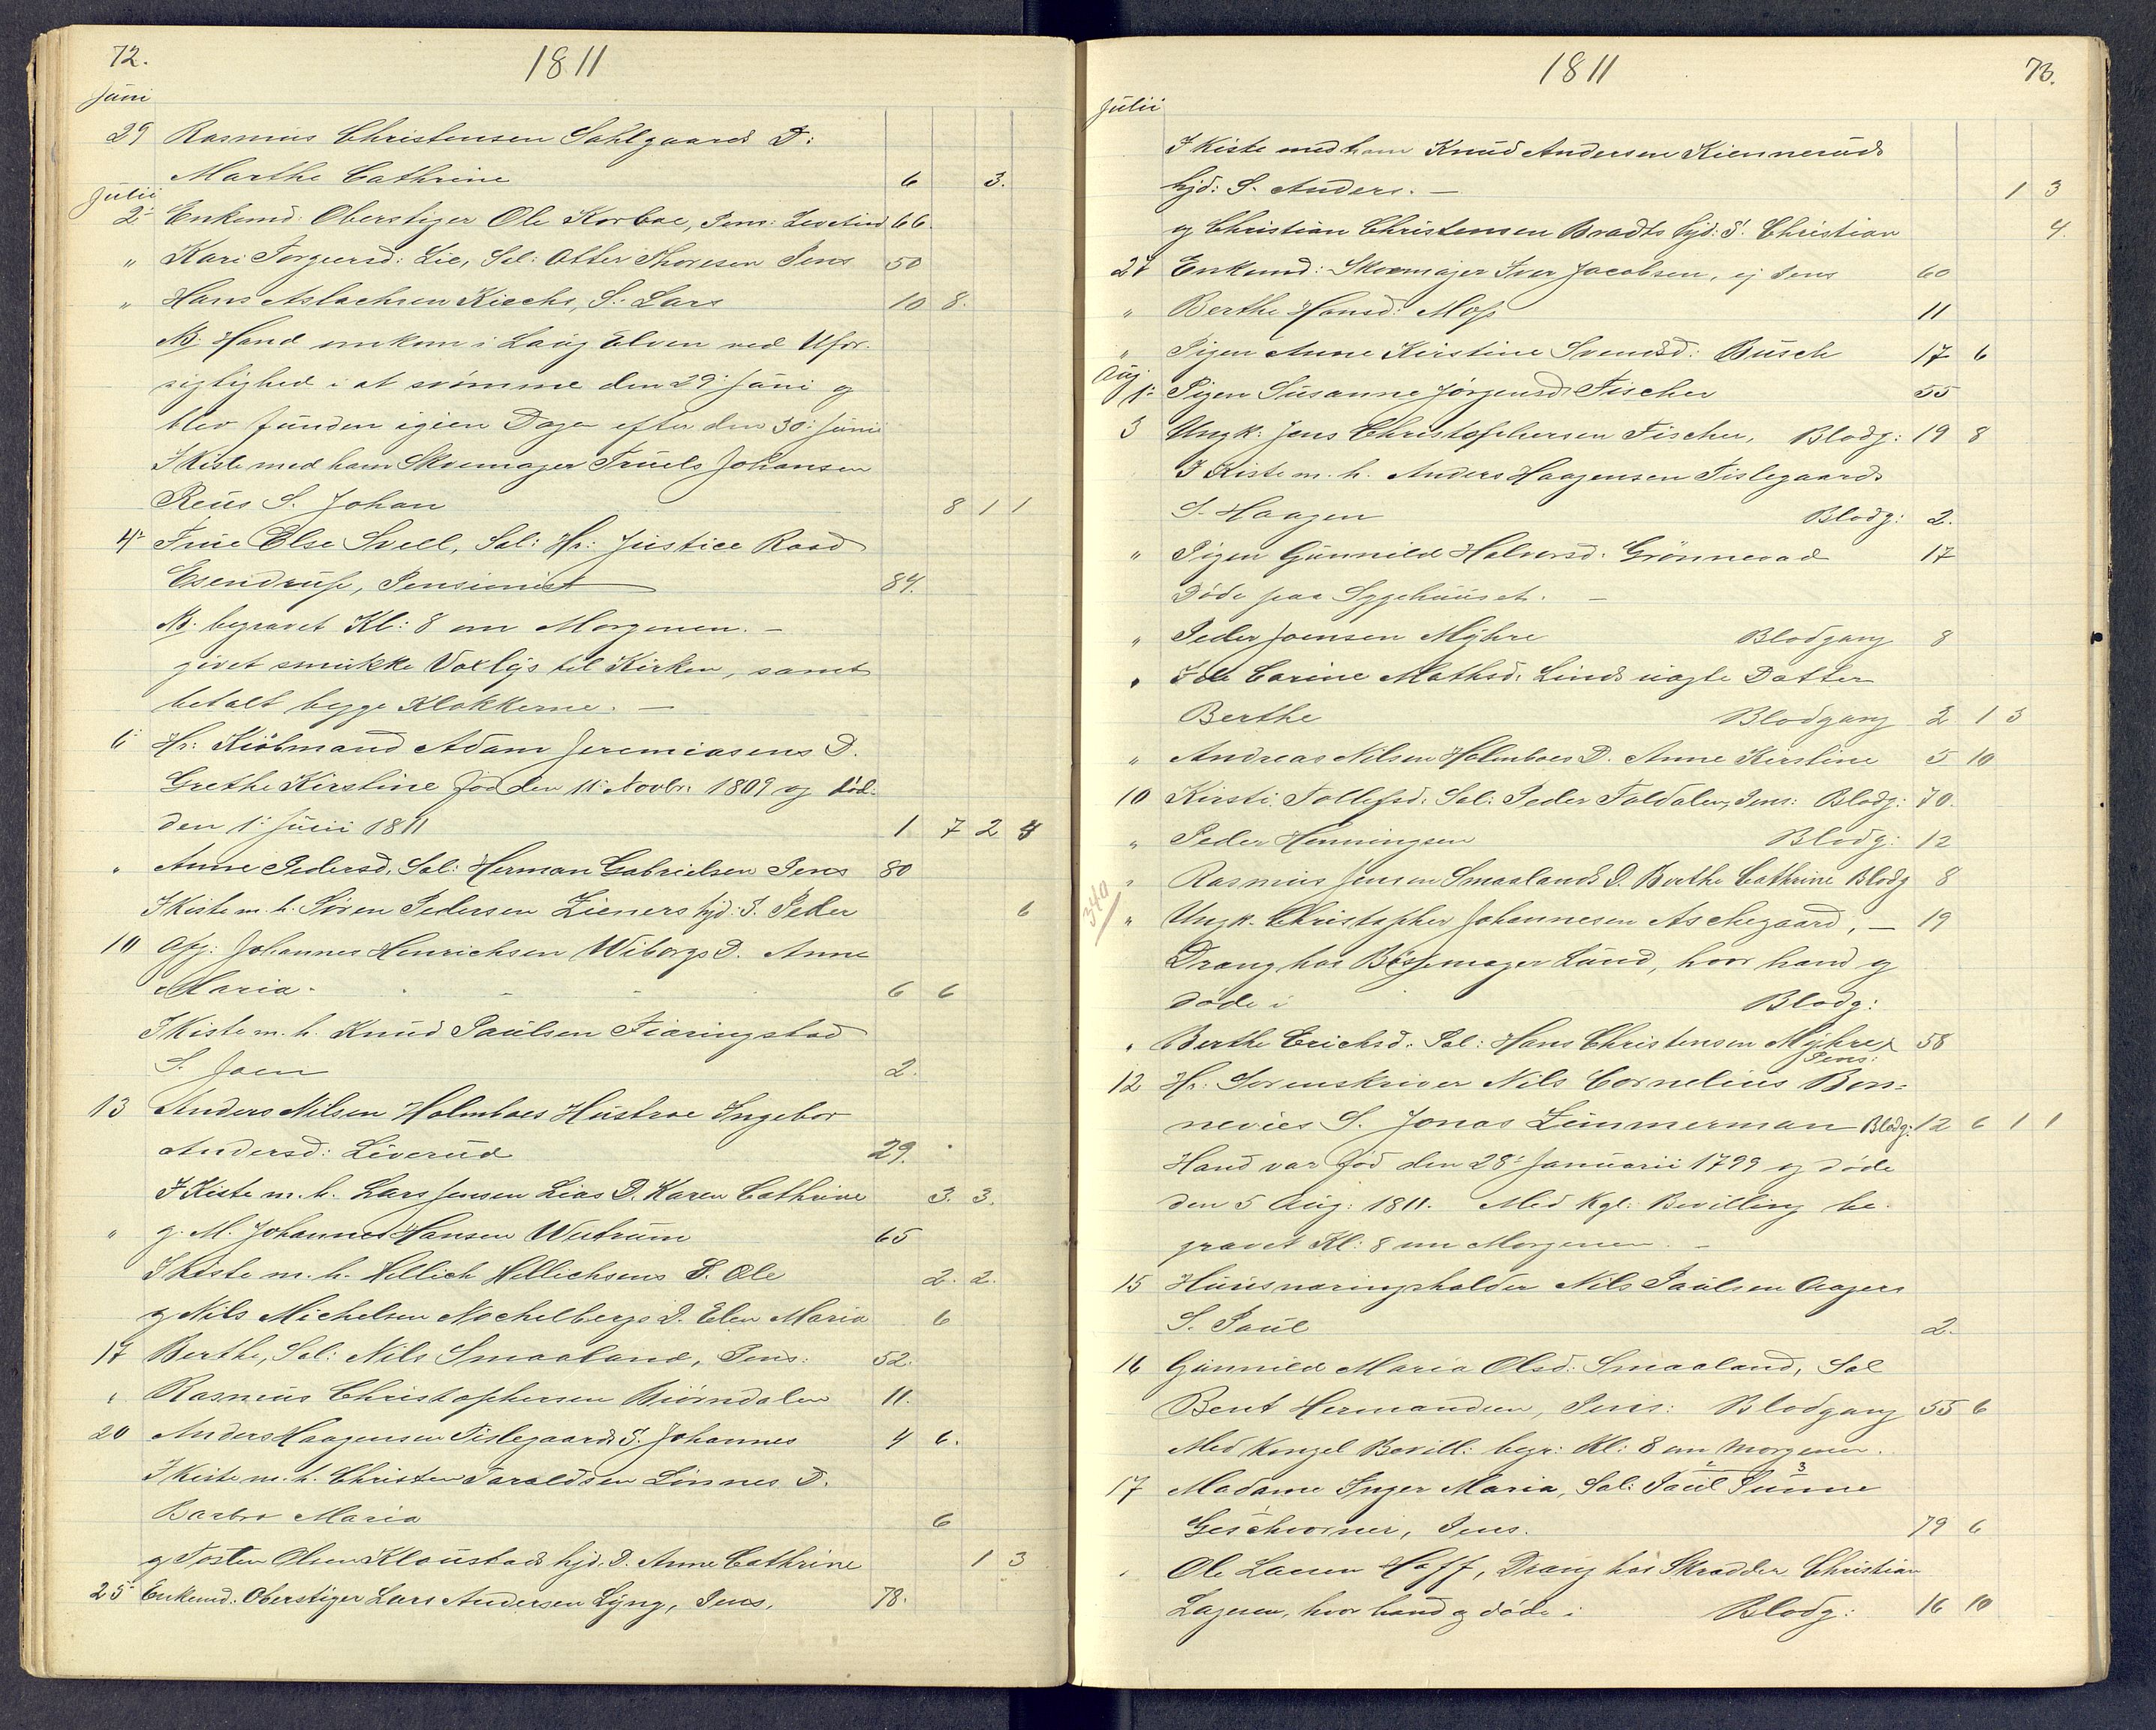 72.
1811
Juni
29 Rasmus Christensen Sahlgaards D:
Marthe Cathrine 6 3.
Julii
2: Enkemd: Oberstiger Ole Korboe, Pens: 66.
" Kari Torgersd: Lie, Sal: Otter Thoresen Pens 50
" Hans Aslachsen Kiechs, S: Lars 10 8.
NB. Hand omkom i Laug Elven ved Ufor-
sigtighed i at svømme den 29: Juni og
blev funden igien Dagen efter den 30: Juni
I Kiste med ham Skoemager Truels Johansen
Reus S. Johan 8 1 1
4: Frue Else Svell, Sal: Hr: Justice Raad
Esendrup, Pensionist 84.
NB. begravet Kl: 8 om Morgenen. —
givet smukke Voxlys til Kirken, samt
betalt begge Klokkerne. —
6: Hr: Kiøbmand Adam Jeremiasens D.
Grethe Kirstine fød den 11: Novbr: 1809 og død
den 1: Julii 1811 1 7 2 4
" Anne Pedersd. Sal: Herman Gabrielsen Pens 80
I Kiste m. h. Søren Pedersen Zieners hjd: S. Peder 6
10 Afg: Johannes Henrichsen Wiborgs D. Anne
Maria. 6 6
I Kiste m. h. Knud Paulsen Fiaringstad
S. Joen 2.
13 Anders Nilsen Holmboes Hustroe Ingebor
Andersd: Liverud 29.
I Kiste m. h. Lars Jensen Lias D. Karen Cathrine 3. 3.
" g. M. Johannes Hansen Westrum 65
I Kiste m. h. Hellich Hellichsens S. Ole 2. 2.
og Nils Michelsen Mochelbergs D. Elen Maria 6
17 Berthe, Sal: Nils Smaaland, Pens: 52.
" Rasmus Christophersen Biørndalen 11.
20 Anders Haagensen Tislegaards S. Johannes 4 6.
I Kiste m. h. Christen Taraldsen Linnes D.
Barbro Maria 6
og Tosten Olsen Kloustads hjd. D. Anne Cathrine 1 3
25: Enkemd. Oberstiger Lars Andersen Lyng, Pens. 78.
1811
73.
Julii
I Kiste med ham Knud Andersen Kienneruds
hjd: S. Anders. — 1 3
og Christian Christensen Bradts hjd: S. Christian 4.
27 Enkemd: Skoemager Iver Jacobsen, ej Pens 60
" Berthe Hansd: Moss 11
" Pigen Anne Kirstine Svendsd: Busch 17 6
Aug
1: Pigen Susanne Jørgensd Fischer 55
3 Ungk: Jens Christophersen Fischer, Blodg: 19 8
I Kiste m. h. Anders Haagensen Tislegaards
S. Haagen Blodg: 2.
" Pigen Gunnild Halvorsd: Grønnevad 17
Døde paa Sygehuuset. —
" Peder Joensen Myhre Blodgang 8
" Ide Carine Mathsd. Linds uægte Datter
Berthe Blodgang 2 1 3
" Andreas Nilsen Holmboes D. Anne Kirstine 5 10
10 Kirsti Tollefsd. Sal: Peder Foldalen, Pens: Blodg: 70.
" Peder Henningsen Blodg: 12
" Rasmus Jensen Smaalands D. Berthe Cathrine Blodg 8
340
" Ungk. Christopher Johannesen Aschegaard, — 19
Dreng hos Bøssemager Lund, hvor hand og
døde i Blodg:
" Berthe Erichsd. Sal: Hans Christensen Myhre 58
Pens:
12 Hr. Sorenskriver Nils Cornelius Bon-
nevies S. Jonas Zimmerman Blodg: 12 6 1 1
Hand var fød den 28: Januarii 1799 og døde
den 5 Aug: 1811. Med Kgl: Bevilling be-
gravet Kl: 8 om Morgenen. —
15 Huusnæringsholder Nils Paulsen Aagers
S. Paul 2.
16 Gunnild Maria Olsd: Smaaland, Sal
Bent Hermandsen, Pens: Blodgang 55 6
Med Kongel Bevill: begr: Kl: 8 om Morgenen.
17 Madame Inger Maria, Sal: Paul Sunne
Geschworner, Pens. 79 6
" Ole Larsen Hoff, Dreng hos Skrædder Christian
Lagesen, hvor hand og døde i Blodg: 16 10